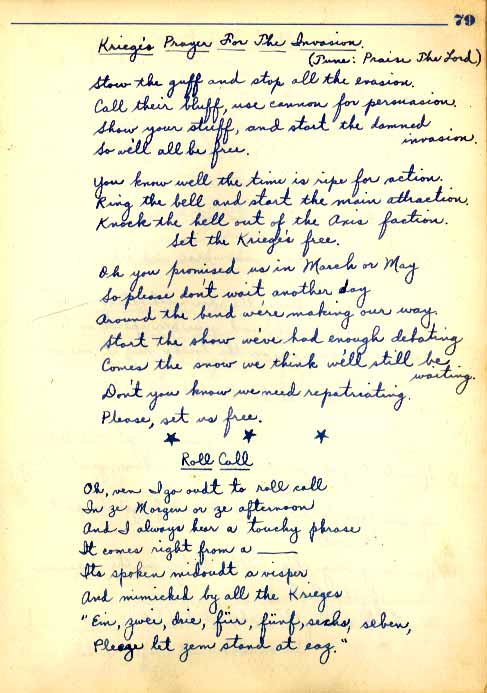 79
Kriegie's Prayer For The Invasion.
(Tune: Praise The Lord)
Stow the guff and stop all the evasion.
Call their bluff, use cannon for persuasion.
Show your stuff, and start the damned
invasion.
So we'll all be free.
You know well the time is ripe for action.
Ring the bell and start the main attraction.
Knock the hell out of the Axis faction.
Set the Kriegie's free.
Oh you promised us in March or May
So please don't wait another day
Around the bend we're making our way.
Start the show we've had enough debating
Comes the snow we think we'll still be
waiting.
Don't you know we need repatriating.
Please, set us free.
Roll Call
Oh, ven I go oudt to roll call
In ze Morgen or ze afternoon
And I always hear a touchy phrase
It comes right from a ____
Its spoken midoudt a visper
And mimicked by all the Krieges
"Ein, zwei, drie, füir, fünf, sechs, seben,
Pleeze let zem stand at eaz."